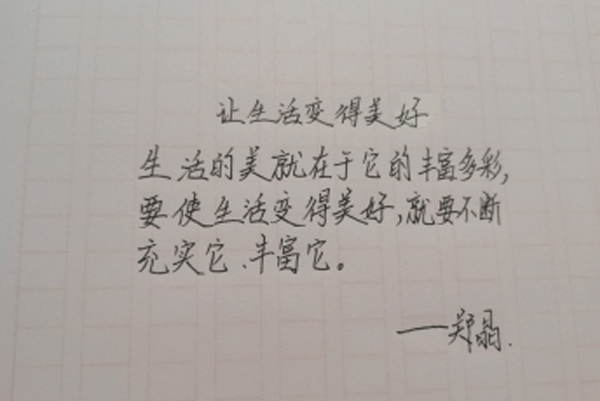 让生活变得美好
生活的美就在于它的丰富多彩,
要使生活变得美好,就要不断
充实它、丰富它。
——郑晶.